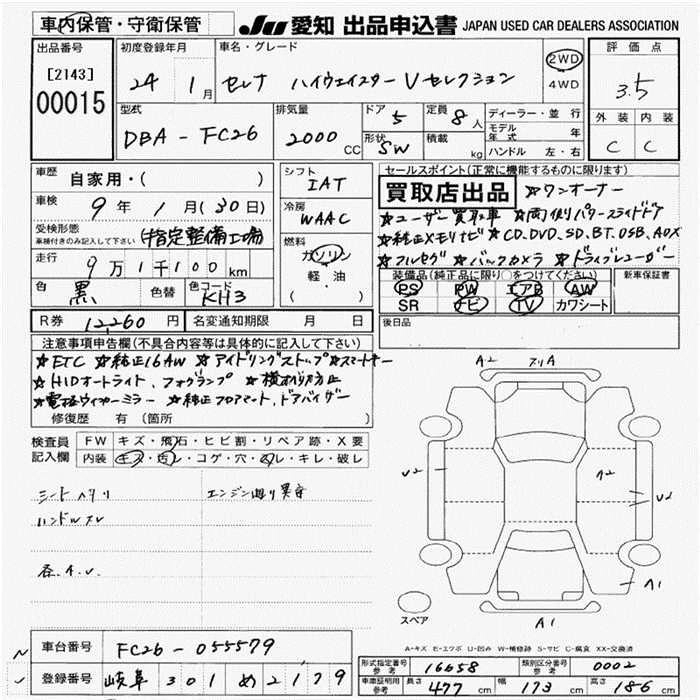 車内保管・守衛保管
JU 愛知 出品申込書 JAPAN USED CAR DEALERS ASSOCIATION
出品番号
[2143]
00015
初度登録年月
24 1 月
車名・グレード
セレナ ハイウェイスター Vセレクション
2WD
4WD
評価点
3.5
外装 内装
C C
型式
DBA-FC26
排気量
2000 CC
ドア
5
定員
8人
形状
SW
積載
kg
ディーラー・並行
モデル年式 年
ハンドル 左・右
車歴
自家用・( )
車検
9年 1月(30日)
受検形態
車検付きのみ記入して下さい
(指定整備工場)
走行
9万1千100km
色
黒
色替
色コード
KH3
シフト
IAT
冷房
WAAC
燃料
ガソリン
軽・油
( )
セールスポイント(正常に機能するものに限ります)
買取店出品 ★ワンオーナー
★ユーザー買取車 ★両側パワースライドドア
★純正メモリナビ ★CD.DVD.SD.BT.USB.AUX
★フルセグ ★バックカメラ ★ドライブレコーダー
装備品(純正品に限り○をつけてください)
PS PW エアB AW
SR ナビ TV カワシート
新車保証書
後日品
R券 12,260円 名変通知期限 月 日
注意事項申告欄(不具合内容等は具体的に記入して下さい)
★ETC ★純正16AW ★アイドリングストップ ★スマートキー
★HIDオートライト、フォグランプ ★横すべり防止
★電格ウィンカーミラー ★純正フロアマット、ドアバイザー
修復歴 有 (箇所 )
検査員記入欄
FW キズ・飛石・ヒビ割・リペア跡・X要
内装 キズ・汚レ・コゲ・穴・スレ・キレ・破レ
シートヘタリ
エンジン廻り異音
ハンドルスレ
各A.U.
A2
A1
U2
A2
U2
A1
スペア
A1
A-キズ E-エクボ U-凹み W-補修跡 S-サビ C-腐食 XX-交換済
車台番号 FC26-055579
登録番号 岐阜 301 め 2179
形式指定番号 参考 16658
類別区分番号 参考 0002
車庫証明用 参考 長さ 477 cm 幅 173 cm 高さ 186 cm